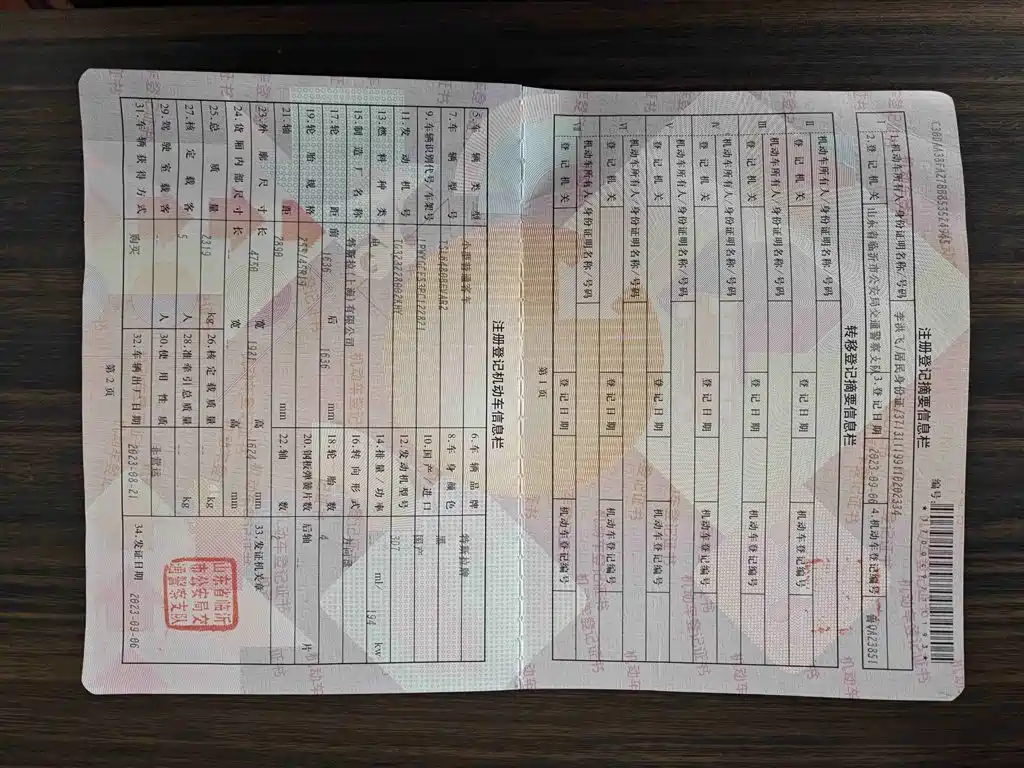 注册登记摘要信息栏
编号:
I
1.机动车所有人/身份证明名称/号码 李洪飞/居民身份证/371311199110202334
2.登记机关 山东省临沂市公安局交通警察支队 3.登记日期 2023-09-06 4.机动车登记编号 鲁QAZ3851
转移登记摘要信息栏
II 机动车所有人/身份证明名称/号码
登记机关 登记日期 机动车登记编号
III 机动车所有人/身份证明名称/号码
登记机关 登记日期 机动车登记编号
IV 机动车所有人/身份证明名称/号码
登记机关 登记日期 机动车登记编号
V 机动车所有人/身份证明名称/号码
登记机关 登记日期 机动车登记编号
VI 机动车所有人/身份证明名称/号码
登记机关 登记日期 机动车登记编号
VII 机动车所有人/身份证明名称/号码
登记机关 登记日期 机动车登记编号
第1页
注册登记机动车信息栏
5.车辆类型 小型普通客车 6.车辆品牌 特斯拉牌
7.车辆型号 8.车身颜色 黑
9.车辆识别代号/车架号 10.国产/进口 国产
11.发动机号 12.发动机型号
13.燃料种类 电 14.排量/功率 ml/ 194 kw
15.制造厂名称 特斯拉(上海)有限公司 16.转向形式 方向盘
17.轮距 前 1636 后 1636 mm 18.轮胎数 4
19.轮胎规格 255/45R19 20.钢板弹簧片数 后轴 片
21.轴距 2890 mm 22.轴数 2
23.外廓尺寸 长 4750 宽 1921 高 1624 mm 33.发证机关章
24.货厢内部尺寸 长 宽 高 mm
25.总质量 2319 kg 26.核定载质量 kg
27.核定载客 5 人 28.准牵引总质量 kg
29.驾驶室载客 人 30.使用性质 非营运
31.车辆获得方式 购买 32.车辆出厂日期 2023-08-21 34.发证日期 2023-09-06
山东省临沂
市公安局交
通警察支队
第2页